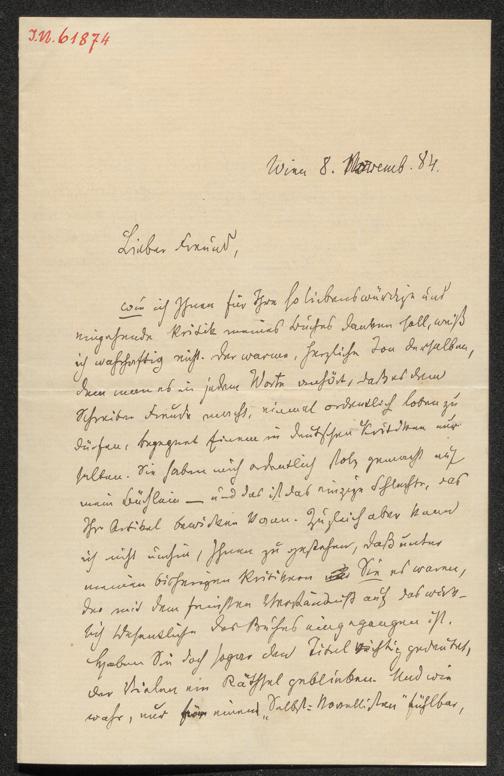 J.N. 61874
Wien 8. Novemb. 84.
Lieber Freund,
wie ich Ihnen für Ihre so liebenswürdige und
eingehende Kritik meines Buches danken soll, weiß
ich wahrhaftig nicht. Der warme, herzliche Ton derselben,
dem man es in jedem Worte anhört, daß es dem
Schreiber Freude macht, einmal ordentlich loben zu
dürfen, begegnet Einem in deutschen Kritiken nur
selten. Sie haben mich ordentlich stolz gemacht auf
mein Büchlein — und das ist das einzige Schlechte, das
Ihr Artikel bewirken kann. Zugleich aber kann
ich nicht umhin, Ihnen zu gestehen, daß unter
meinen bisherigen Kritikern Sie es waren,
der mit dem feinsten Verständniß auf das wirk-
lich Wesentliche des Buches eingegangen ist.
Haben Sie doch sogar den Titel richtig gedeutet,
der Vielen ein Räthsel geblieben. Und wie
wahr, nur einem „Selbst-Novellisten" fühlbar,